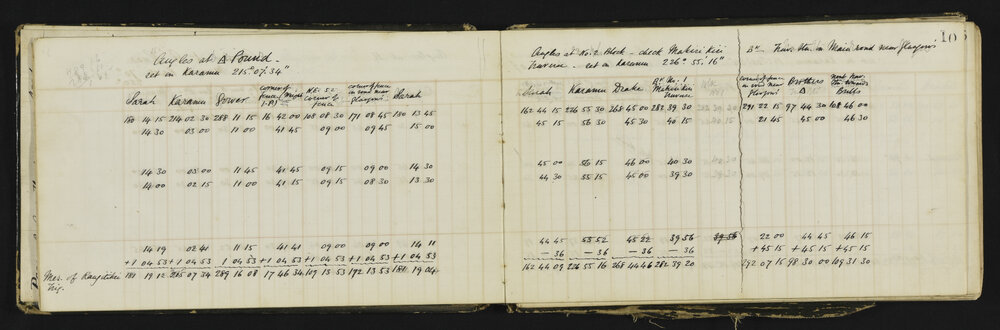 Angles at Δ Pound -
set on Karamu 215° 07' 34"
Sarah Karamu Gower corner of fence KE. 52 corner of fence corner of fence in road near Glasgows Sarah
180 14 15 214 02 30 288 11 15 16 42 00 108 08 30 171 08 45 180 13 45
14 30 03 00 11 00 41 45 09 00 09 45 15 00
14 30 03 00 11 45 41 45 09 15 09 00 14 30
14 00 02 15 11 00 41 15 09 15 08 30 13 30
14 19 02 41 11 15 41 41 09 00 09 00 14 11
+1 04 53 +1 04 53 1 04 53 +1 04 53 +1 04 53 +1 04 53 +1 04 53
Mer. of Rangitikei Trig. 181 19 12 215 07 34 289 16 08 17 46 34 109 13 53 172 13 53 181 19 04
10
Angles at No. 2 Block - check Makiri Kiri
Traverse - set on Karamu 226° 55' 16"
Sarah Karamu Drake No. 1 Makirikiri Traverse
162 44 15 226 55 30 268 45 00 282 39 30
45 15 56 30 45 30 40 15
45 00 56 15 46 00 40 30
44 30 55 15 45 00 39 30
44 45 55 52 45 22 39 56 39 56
- 36 - 36 - 36
162 44 09 226 55 16 268 44 46 282 39 20
Trav. Stn in Main road near Glasgows
corner of fence in road near Glasgows Brothers Δ next Trav. Stn towards Bulls
291 22 15 97 44 30 108 46 00
21 45 45 00 46 30
22 00 44 45 46 15
+ 45 15 + 45 15 + 45 15
292 07 15 98 30 00 109 31 30